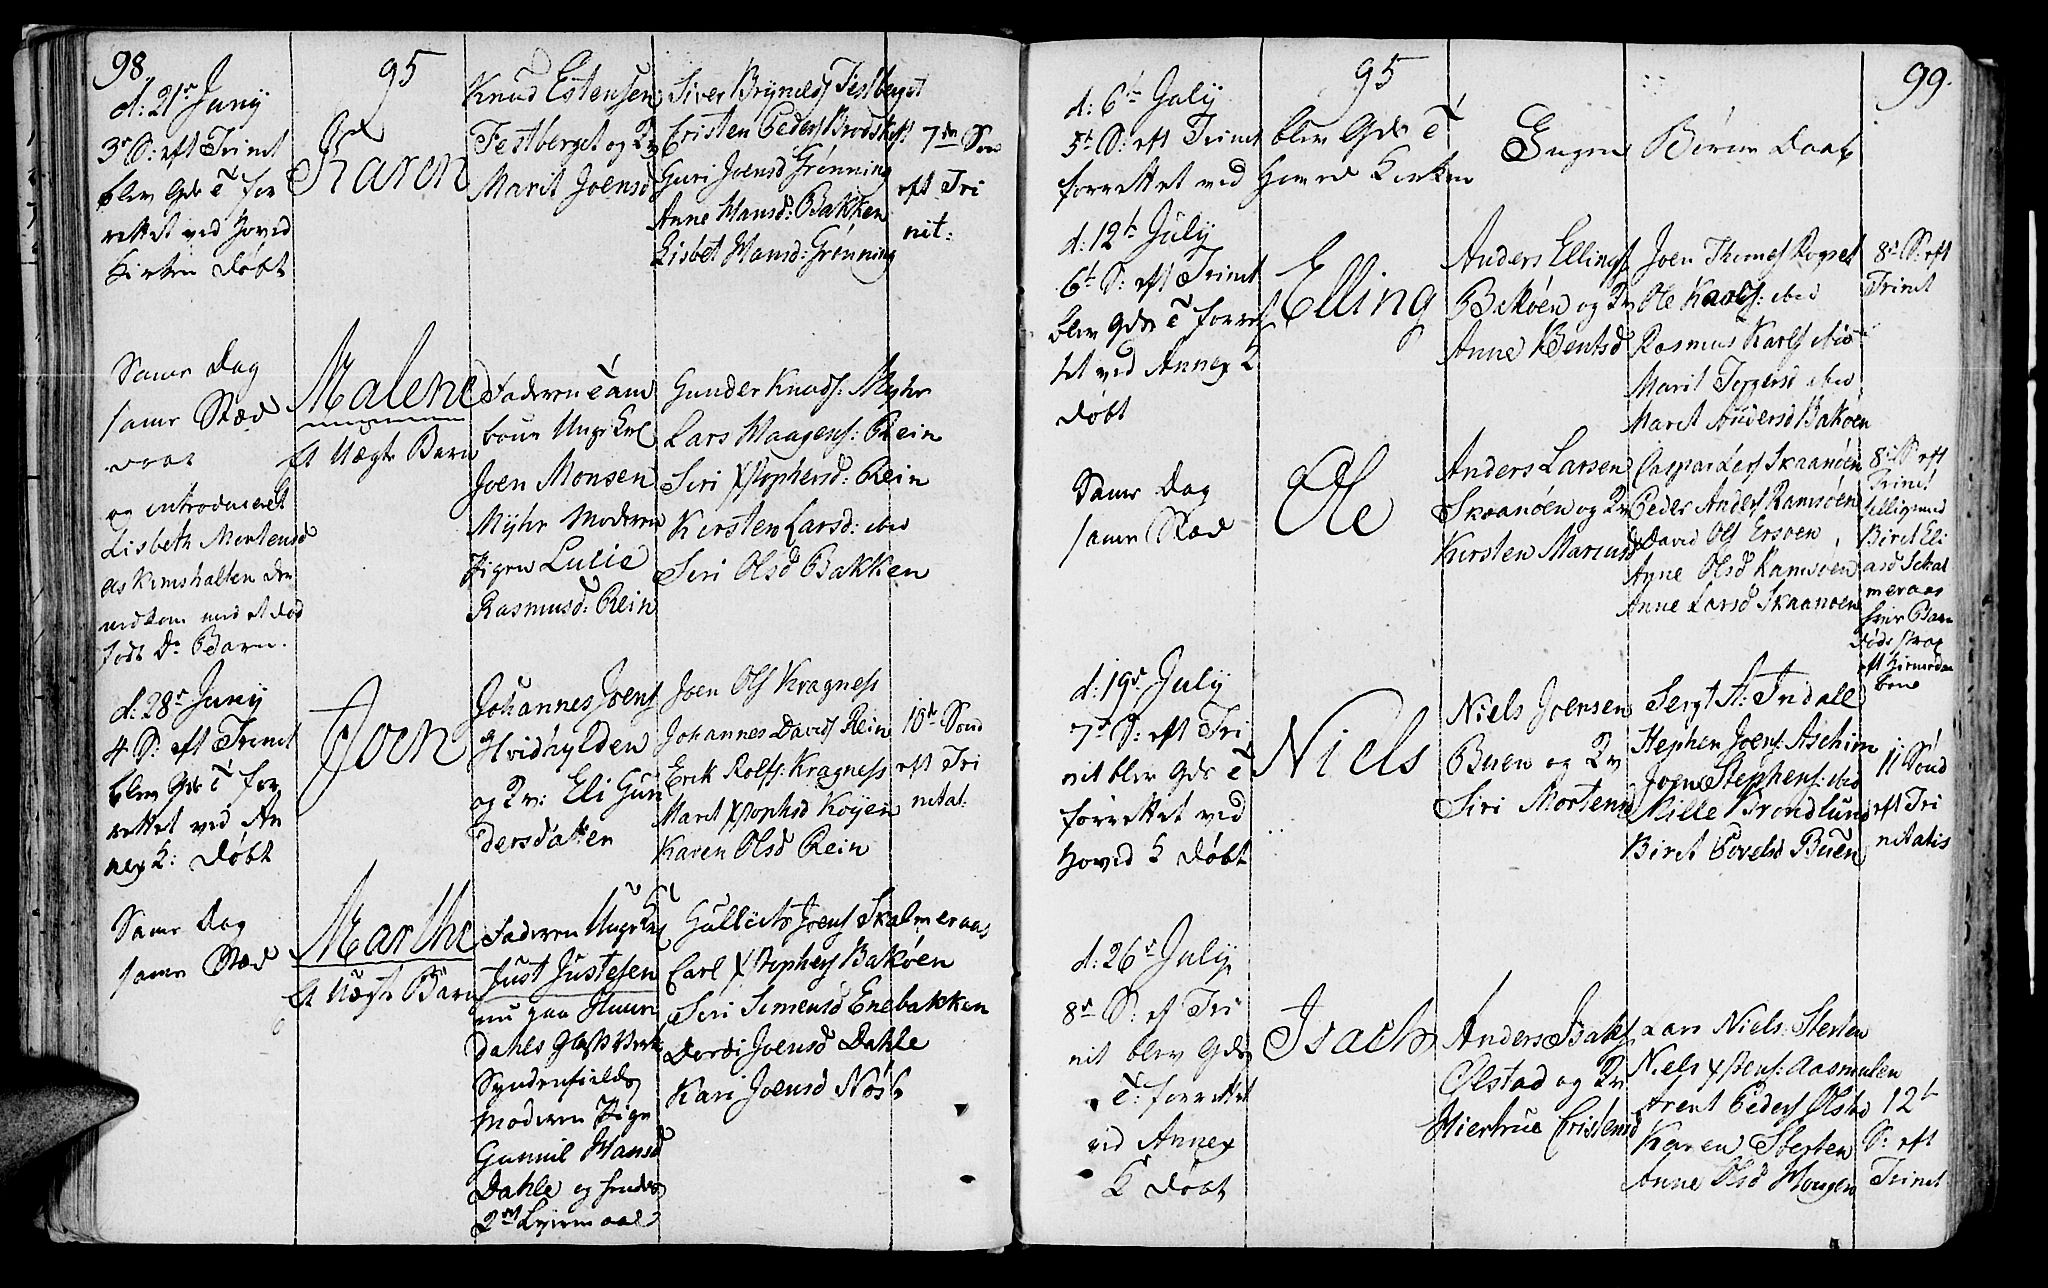 98
95
d: 21de Juny
3de S: eft Trinet
blev Gds T for
rettet ved Hovid
Kirken døbt
Karen
Knud Estensen
Festberget og Qv
Marit Joensd
Siver Brynilds Festberget
Cristen Peders
Guri Joensd Grønning
Anne Hansd: Bakken
Lisbet Hansd: Grønning
7de Son
eft Tri
nit:
Same Dag
same Stæd
døbt
og introduceret
Lisbeth Mortensd
Askimshalten der
nedkom med et død
født Do Barn.
Malene
Et Uægte Barn
Faderen
Unge Karl
Joen Monsen
Myhr Moderen
Pigen Lucie
Rasmusd: Rein
Gunder Knuds: Myhr
Lars Haagens: Rein
Siri Xstophersd: Rein
Kirsten Larsd: ibid
Siri Olsd Bakken
d: 28de Juny
4 S: eft Trinet
blev Gds T for
rettet ved An
nex K: døbt
Joen
Johannes Joens
Hvidhylden
og Qv: Eli Gun
dersdatter
Joen Ols Kragness
Johannes Davids Rein
Erik Rolfs: Kragness
Maret Xstophsd Koyen
Karen Olsd Rein
10de Sond
eft Tri
nitat:
Same Dag
same Stæd
Marthe
Et Uægte Barn
Faderen Unge Karl
Just Justesen
nu paa Huur
dahls Glass Værk
Syndenfields
Moderen Pige
Gunnil Hansd
Dahle og hendes
2det Leyermaal
Gullich Joens Skalmeraas
Carl Xstophers Bakøen
Siri Simensd Enebakken
Dordi Joensd Dahle
Kari Joensd Nøst
95
99.
d: 6te July
5te S: eft Trinet blev Gds T
forrettet ved Hovid Kirken
Ingen Børn Daab
d: 12te July
6te S: eft Trinet
blev Gds T forret
tet ved Annex K
døbt
Elling
Anders Ellings
Bakøen og Qv
Anne Bentsd
Joen Thomes Rogset
Ole Karls: ibid
Rasmus Karls ibid
Marit Torgersd ibid
Maret Andersd Bakøen
8de S: eft
Trinet
Same Dag
same Stæd
Ole
Anders Larsen
Skaanøen og Qv
Kirsten Mariusd
Caspar Lars Skaanøen
Peder Anders Ramsøen
David Ols Ersøen
Ane Olsd Ramsøen
Anne Larsd Skaanøen
8de S: eft
Trinet
tilligemed
Biret Eli
asd Skal
meraas
hvis Barn
døde strax
eft Hiemedaa
ben
d: 19de July
7de S: eft Tri
nit blev Gds T
forrettet ved
Hovid K døbt
Niels
Niels Joensen
Buen og Qv
Siri Mortensd
Sergt A: Indall
Stephen Joens: Aschim
Joen Stephens: ibid
Mille Brondlund
Biret Povelsd Buen
11 Sond
eft Tri
nitatis
d: 26de July
8de S: eft Tri
nit blev Gds
T: forrettet
ved Annex
K døbt
Isach
Anders Isaks
Olstad og Qv
Hiertrue Cristensd
Lars Niels: Sterten
Niels Xstens: Aasmulen
Arent Peders Olstad
Karen Sterten
Anne Olsd Haugen
12te
S: eft
Trinet